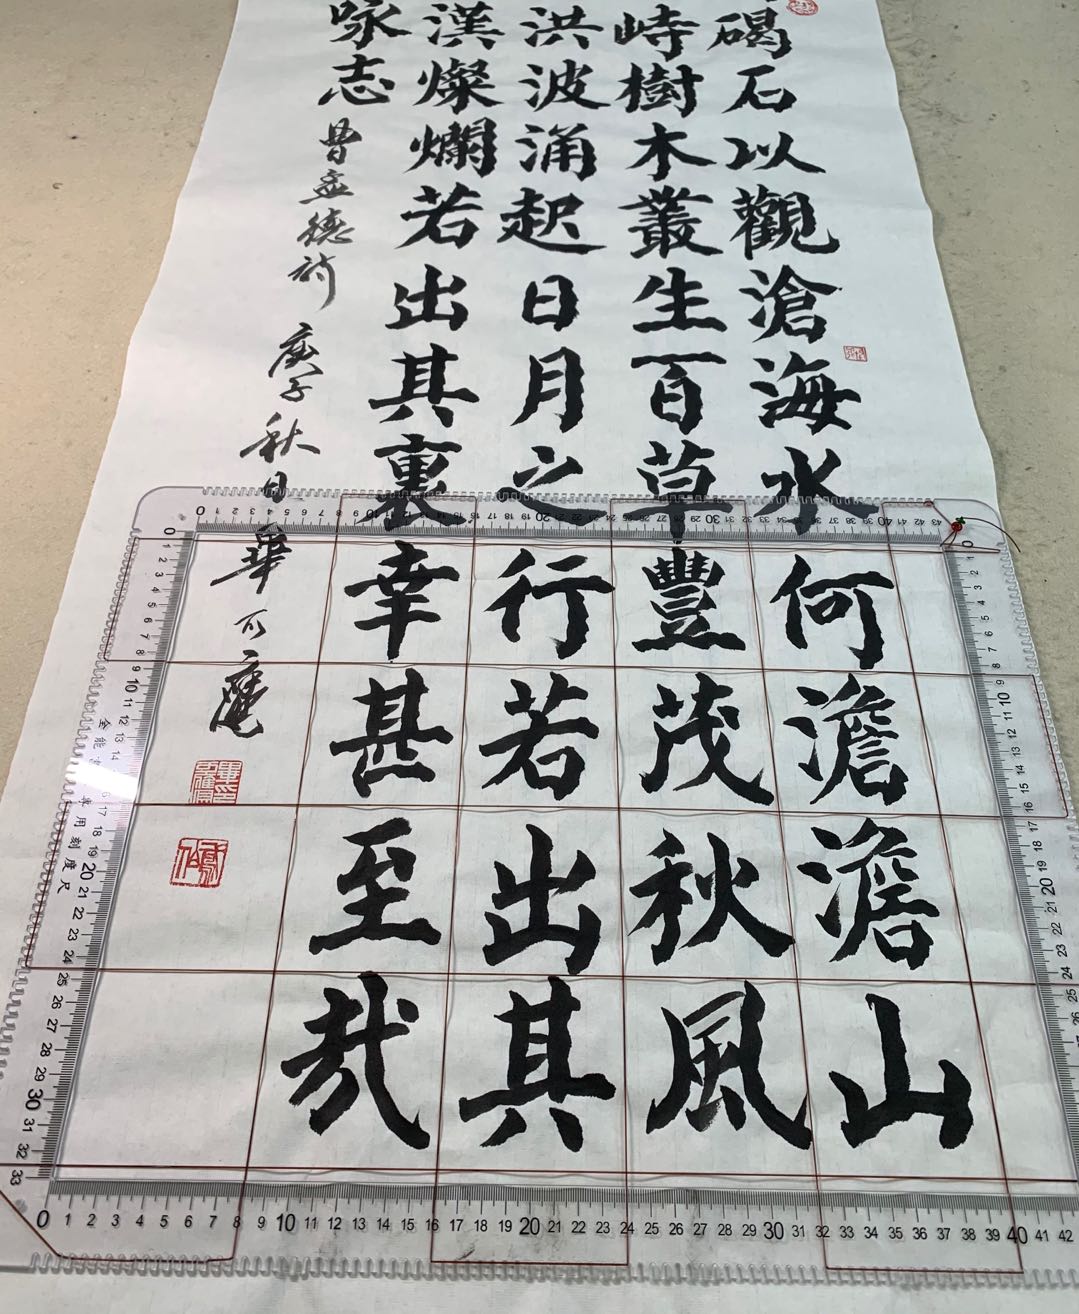 碣石以觀滄海水何澹澹山
峙樹木叢生百草豐茂秋風
洪波涌起日月之行若出其
漢燦爛若出其裏幸甚至哉
咏志 曹孟德詩 庚子秋日畢可鷹
0 1 2 3 4 5 6 7 8 9 10 11 12 13 14 15 16 17 18 19 20 21 22 23 24 25 26 27 28 29 30 31 32 33 34 35 36 37 38 39 40 41 42